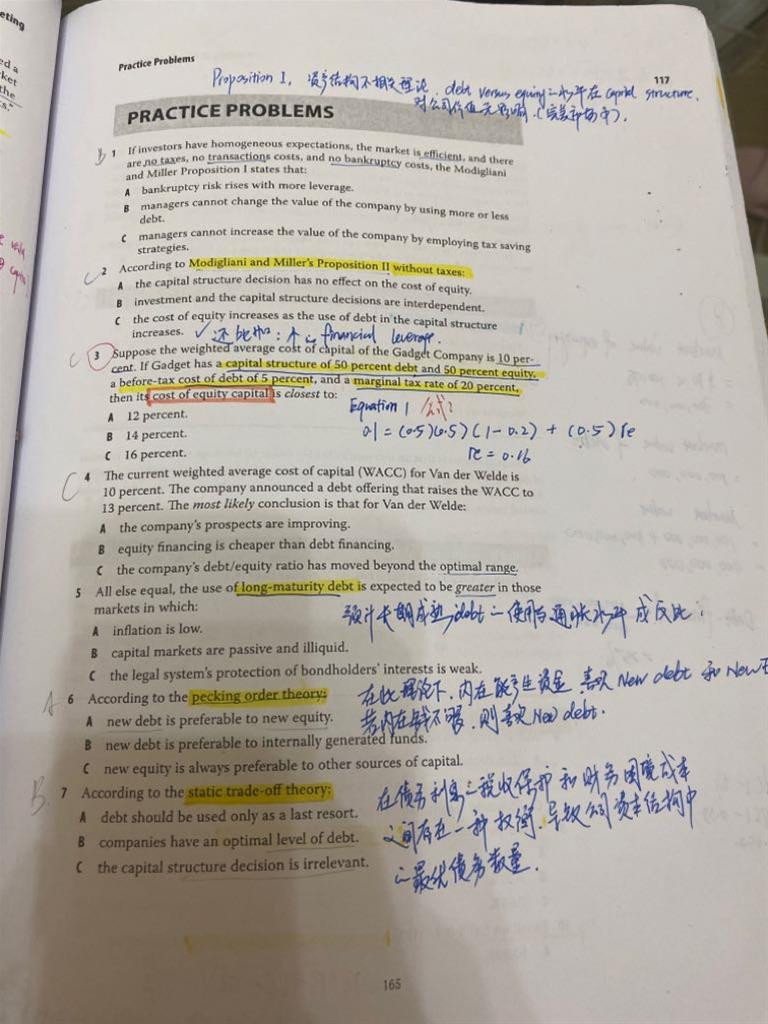 Practice Problems
117
Proposition I, 资产结构不相关理论. debt versus equity 水平在 capital structure.
对公司价值无影响. (完美市场中).
PRACTICE PROBLEMS
B 1 If investors have homogeneous expectations, the market is efficient, and there
are no taxes, no transactions costs, and no bankruptcy costs, the Modigliani
and Miller Proposition I states that:
A bankruptcy risk rises with more leverage.
B managers cannot change the value of the company by using more or less
debt.
C managers cannot increase the value of the company by employing tax saving
strategies.
C 2 According to Modigliani and Miller's Proposition II without taxes:
A the capital structure decision has no effect on the cost of equity.
B investment and the capital structure decisions are interdependent.
C the cost of equity increases as the use of debt in the capital structure
increases. ✓ financial leverage.
C 3 Suppose the weighted average cost of capital of the Gadget Company is 10 per-
cent. If Gadget has a capital structure of 50 percent debt and 50 percent equity,
a before-tax cost of debt of 5 percent, and a marginal tax rate of 20 percent,
then its cost of equity capital is closest to:
A 12 percent.
Equation 1 公式:
B 14 percent.
0.1 = (0.5)(0.5)(1-0.2) + (0.5)re
C 16 percent.
re = 0.16
C 4 The current weighted average cost of capital (WACC) for Van der Welde is
10 percent. The company announced a debt offering that raises the WACC to
13 percent. The most likely conclusion is that for Van der Welde:
A the company's prospects are improving.
B equity financing is cheaper than debt financing.
C the company's debt/equity ratio has moved beyond the optimal range.
5 All else equal, the use of long-maturity debt is expected to be greater in those
markets in which:
预计长期成熟 debt 使用与通胀水平成反比.
A inflation is low.
B capital markets are passive and illiquid.
C the legal system's protection of bondholders' interests is weak.
A 6 According to the pecking order theory:
在此理论下, 内在能产生资金 喜欢 New debt 和 New
A new debt is preferable to new equity.
若内在钱不够, 则喜欢 New debt.
B new debt is preferable to internally generated funds.
C new equity is always preferable to other sources of capital.
B 7 According to the static trade-off theory:
在债务利息税收保护和财务困境成本
A debt should be used only as a last resort.
之间存在一种权衡, 导致公司资本结构中
B companies have an optimal level of debt.
最优债务数量.
C the capital structure decision is irrelevant.
165